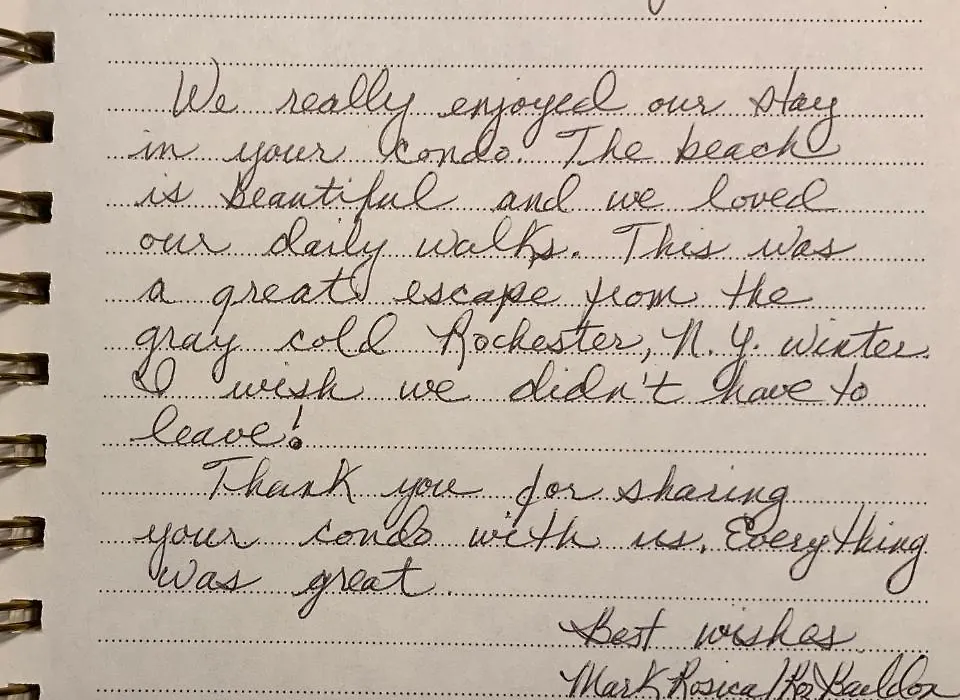 We really enjoyed our stay
in your condo. The beach
is beautiful and we loved
our daily walks. This was
a great escape from the
gray cold Rochester, N.Y. winter.
I wish we didn't have to
leave!
Thank you for sharing
your condo with us. Everything
was great.
Best wishes
Mark Rosica